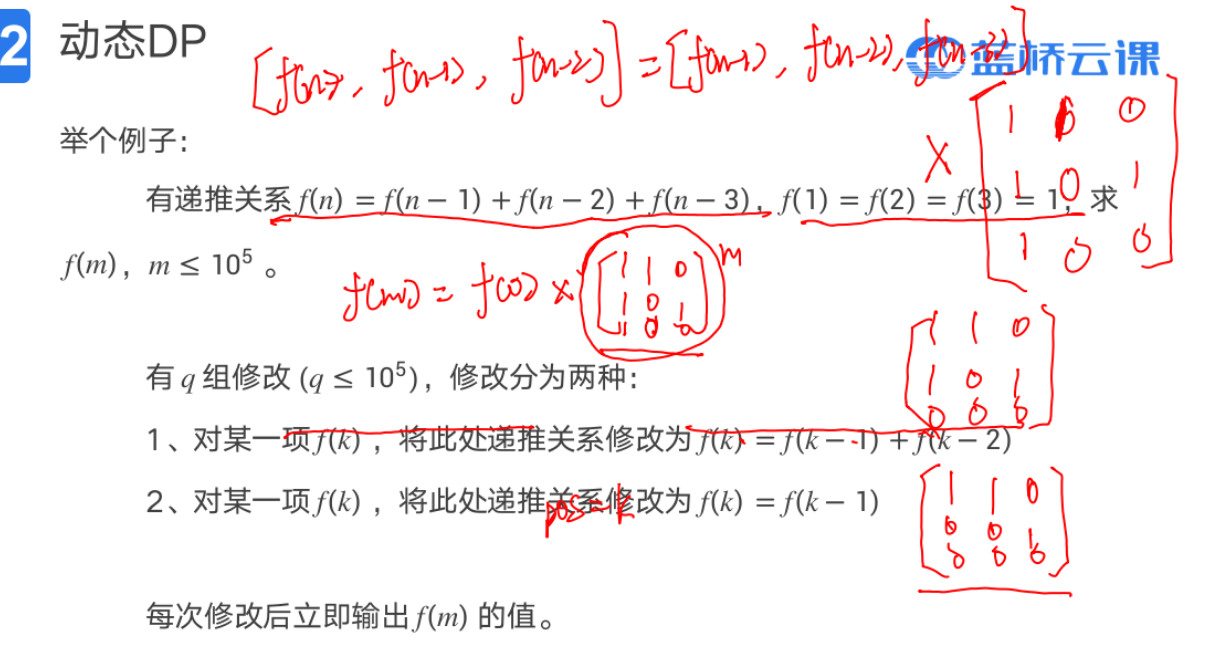 2 动态DP
[f(n), f(n-1), f(n-2)] = [f(n-1), f(n-2), f(n-3)]
蓝桥云课
× [1 1 0
1 0 1
1 0 0]
举个例子：
有递推关系 f(n) = f(n − 1) + f(n − 2) + f(n − 3)，f(1) = f(2) = f(3) = 1，求
f(m)，m ≤ 10⁵ 。
f(m) = f(0) × [1 1 0
1 0 1
1 0 0]^m
有 q 组修改 (q ≤ 10⁵)，修改分为两种：
[1 1 0
1 0 1
0 0 0]
1、对某一项 f(k) ，将此处递推关系修改为 f(k) = f(k − 1) + f(k − 2)
2、对某一项 f(k) ，将此处递推关系修改为 f(k) = f(k − 1)
pos=k
[1 1 0
0 0 1
0 0 0]
每次修改后立即输出 f(m) 的值。